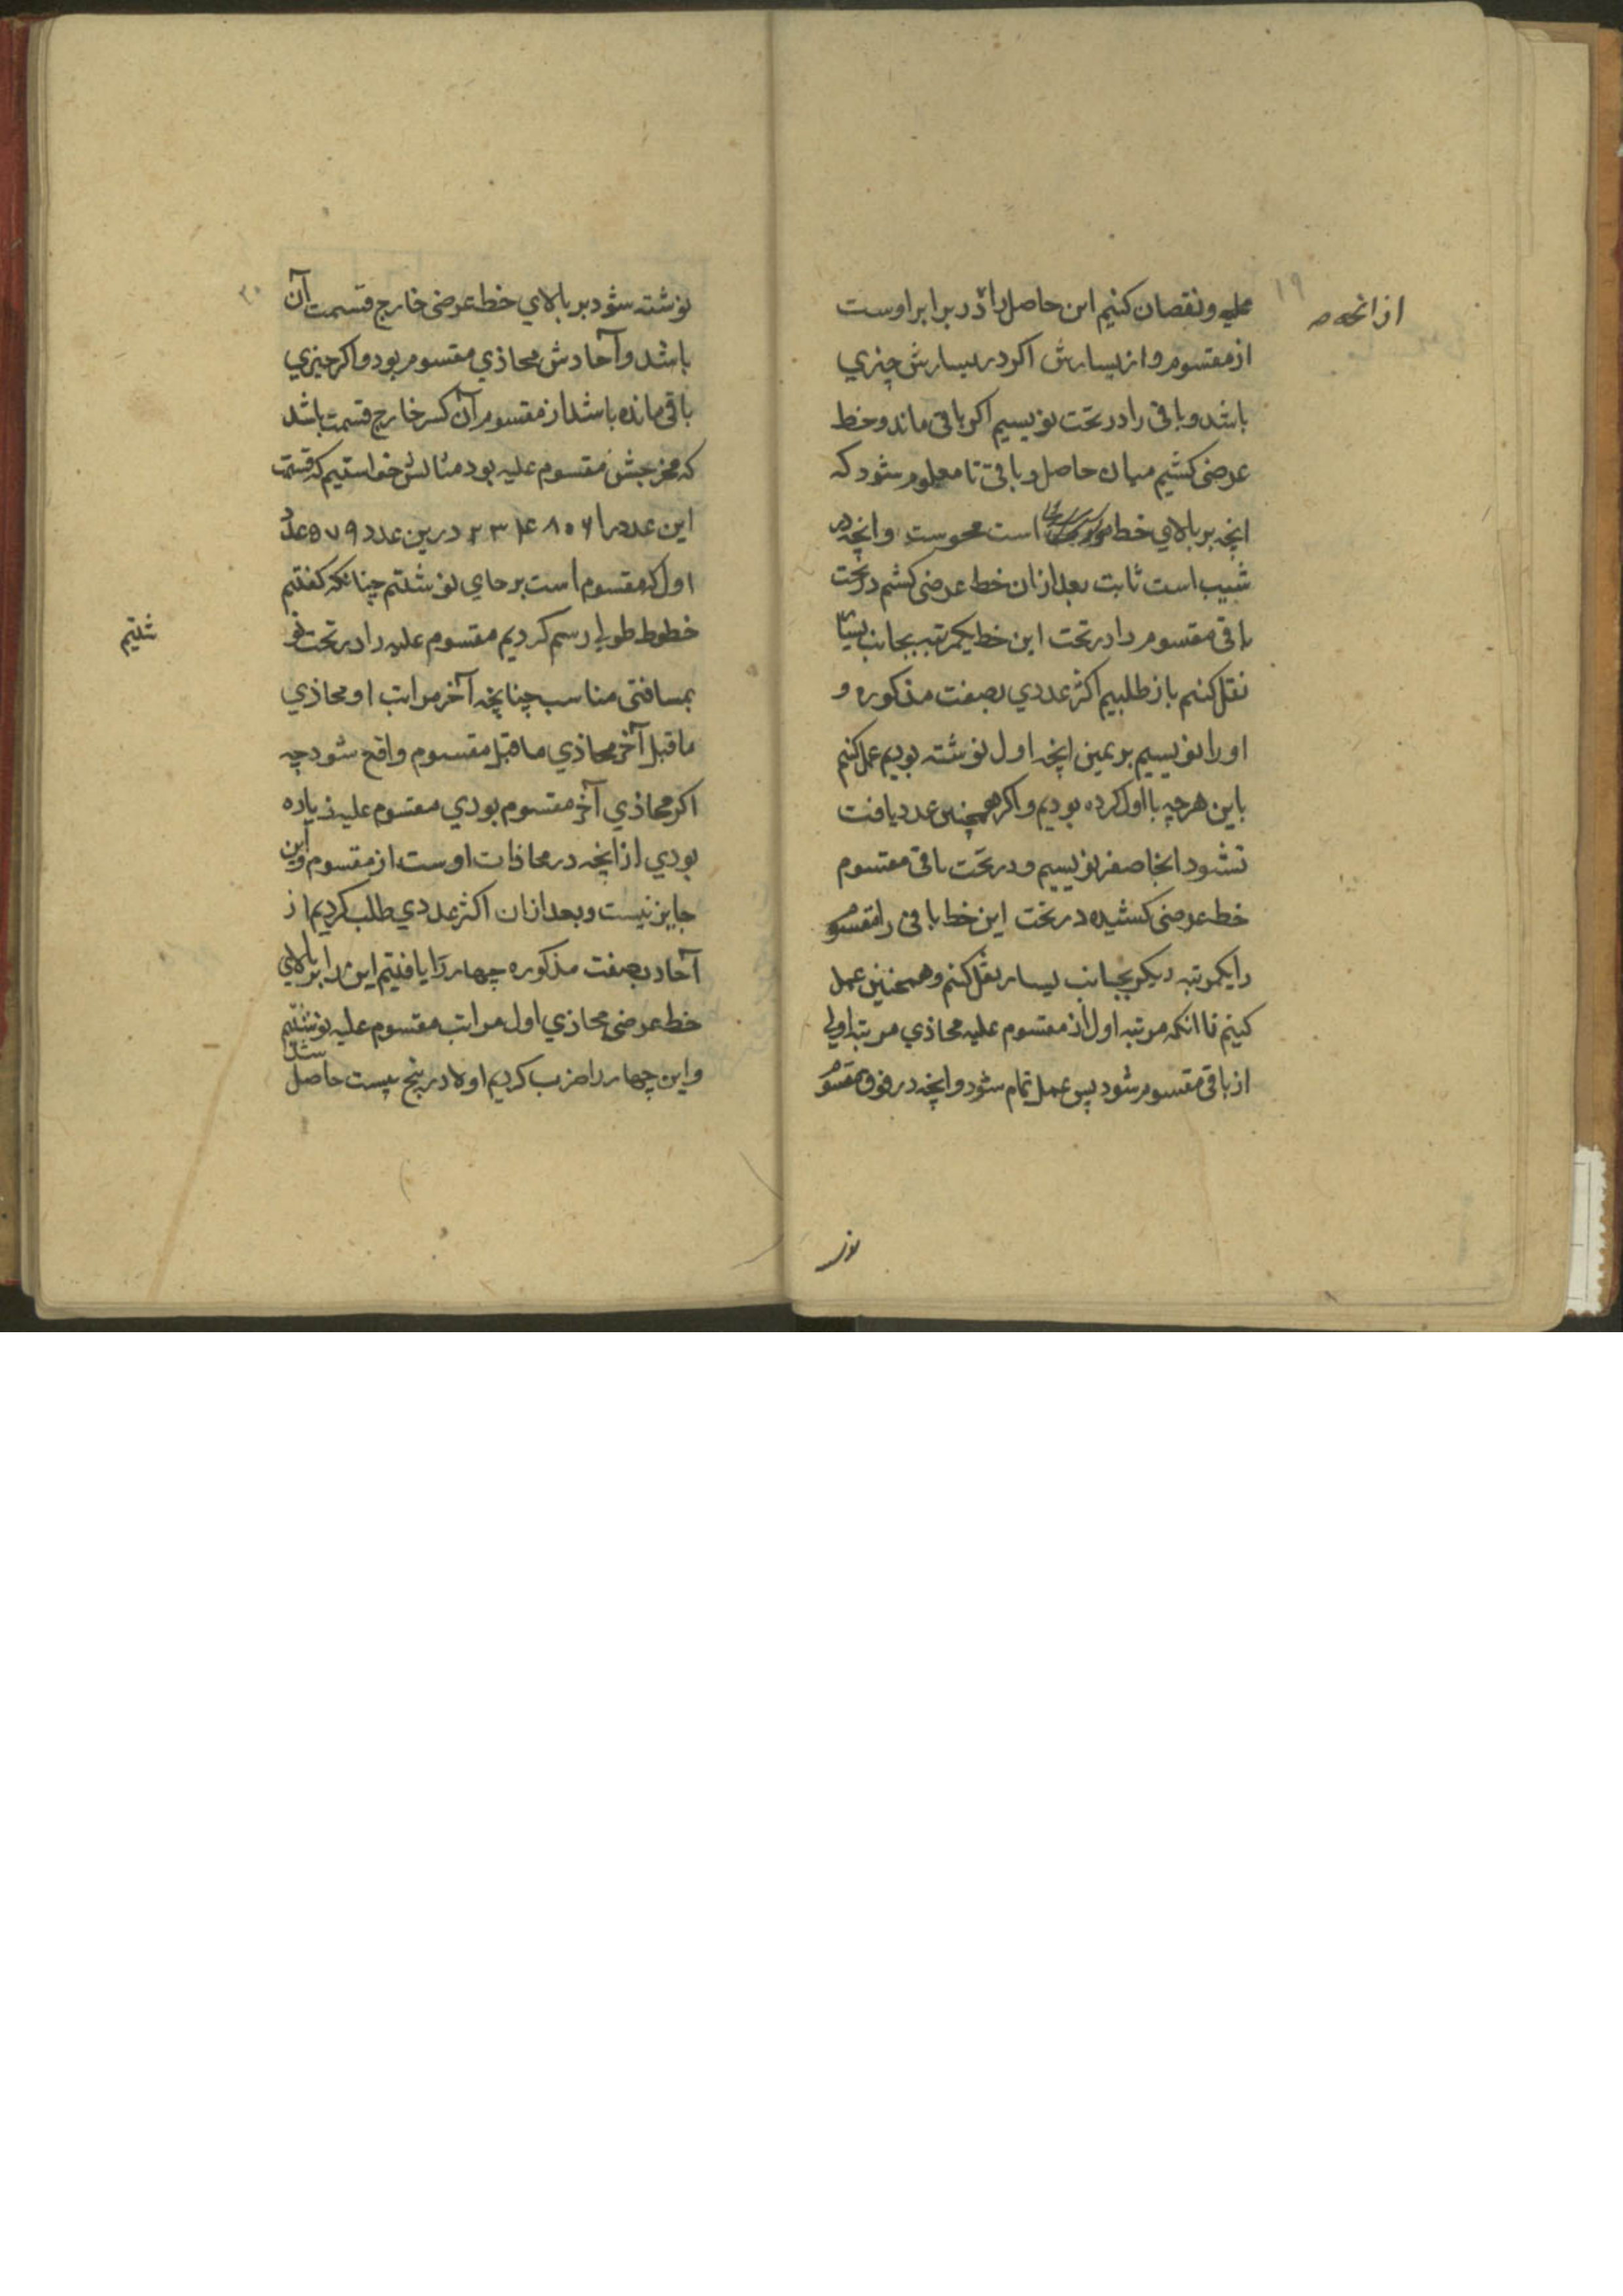 علیه ونقصان کنیم این حاصل را در برابر اوست
از انچه
از مقسوم و از یسارش اکر در یسارش چیزي
باشد و باقی را در تحت نویسیم اکر باقی ماند و خط
عرضی کشیم میان حاصل و باقی تا معلوم شود که
انچه بر بالاي خط است محوست و انچه در
شیب است ثابت بعد ازان خط عرضی کشیم در تحت
باقی مقسوم را در تحت این خط یکمرتبه بجانب
نقل کنیم باز طلبیم اکثر عددي بصفت مذکوره و
او را نویسیم بر یمین انچه اول نوشته بودیم عمل کنیم
باین هرچه با اول کرده بودیم و اکر همچنین عدد یافت
نشود انجا صفر نویسیم و در تحت باقی مقسوم
خط عرضی کشیده در تحت این خط باقی را مقسوم
را یکمرتبه دیکر بجانب یسار نقل کنیم و همچنین عمل
کنیم تا انکه مرتبه اول از مقسوم علیه محاذي مرتبه اولی
از باقی مقسوم شود پس عمل تمام شود و انچه در فوق مقسوم
نو
۱۹
نوشته شود بر بالاي خط عرضی خارج قسمت آن
۲۰
باشد و آحادش محاذي مقسوم بود و اکر چیزي
باقی مانده باشد از مقسوم آن کسر خارج قسمت باشد
که مخرجش مقسوم علیه بود مثالش خواستیم که قسمت
این عدد را ۲۳۴۸۰۶ درین عدد ۵۷۹ عدد
اول که مقسوم است برجاي نوشتیم چنانکه کفتیم
خطوط طولی رسم کردیم مقسوم علیه را در تحت نو
شتیم
بمسافتی مناسب چنانچه آخر مراتب او محاذي
ماقبل آخر محاذي ماقبل مقسوم واقع شود چه
اکر محاذي آخر مقسوم بودي مقسوم علیه زیاده
بودي از انچه در محاذات اوست از مقسوم و این
جایز نیست و بعد ازان اکثر عددي طلب کردیم از
آحاد بصفت مذکوره چهار را یافتیم این را بر بالاي
خط عرضی محاذي اول مراتب مقسوم علیه نوشتیم
و این چهار را ضرب کردیم اولا در پنج بیست حاصل شد